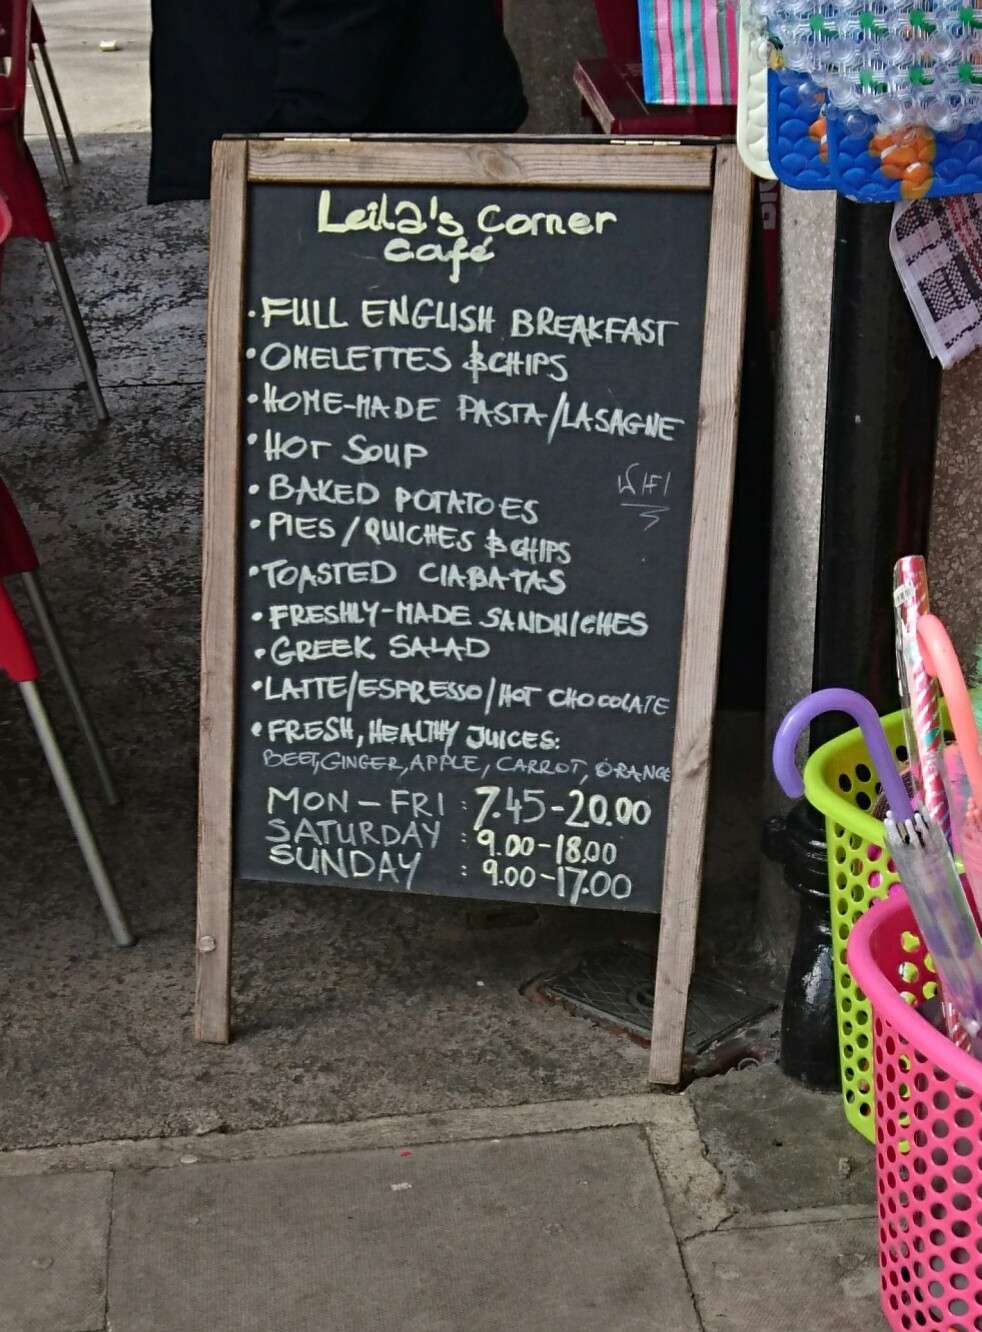 Leila's Corner
Café
• FULL ENGLISH BREAKFAST
• OMELETTES & CHIPS
• HOME-MADE PASTA/LASAGNE
• HOT SOUP
WIFI
• BAKED POTATOES
• PIES / QUICHES & CHIPS
• TOASTED CIABATAS
• FRESHLY-MADE SANDWICHES
• GREEK SALAD
• LATTE/ESPRESSO/HOT CHOCOLATE
• FRESH, HEALTHY JUICES:
BEET, GINGER, APPLE, CARROT, ORANGE
MON - FRI : 7.45-20.00
SATURDAY : 9.00-18.00
SUNDAY : 9.00-17.00